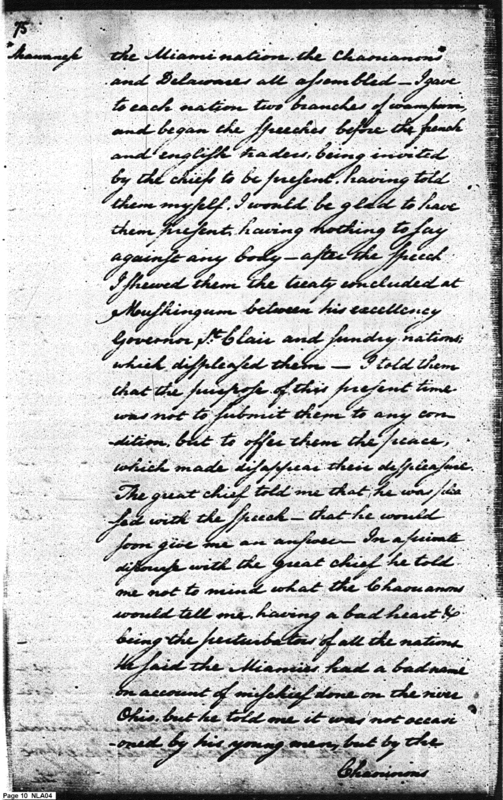 75
"Shawanese the Miami nation, the Chaouanons"
and Delawares all assembled – I gave
to each nation two branches of wampum,
and began the speeches before the french
and english traders, being invited
by the chiefs to be present, having told
them myself, I would be glad to have
them present, having nothing to say
against any body – after the speech
I shewed them the treaty concluded at
Muskingum between his excellency
Governor St. Clair and sundry nations;
which displeased them – I told them
that the purpose of this present time
was not to submit them to any con-
dition, but to offer them the peace,
which made disappear their displeasure.
The great chief told me that he was plea
sed with the speech – that he would
soon give me an answer – In a private
discourse with the great chief he told
me not to mind what the Chaouanons
would tell me, having a bad heart &
being the perturbators of all the nations.
He said the Miamies had a bad name
on account of mischief done on the river
Ohio, but he told me it was not occasi
-oned by his young men, but by the
Chaouanons
Page 10 NLA04